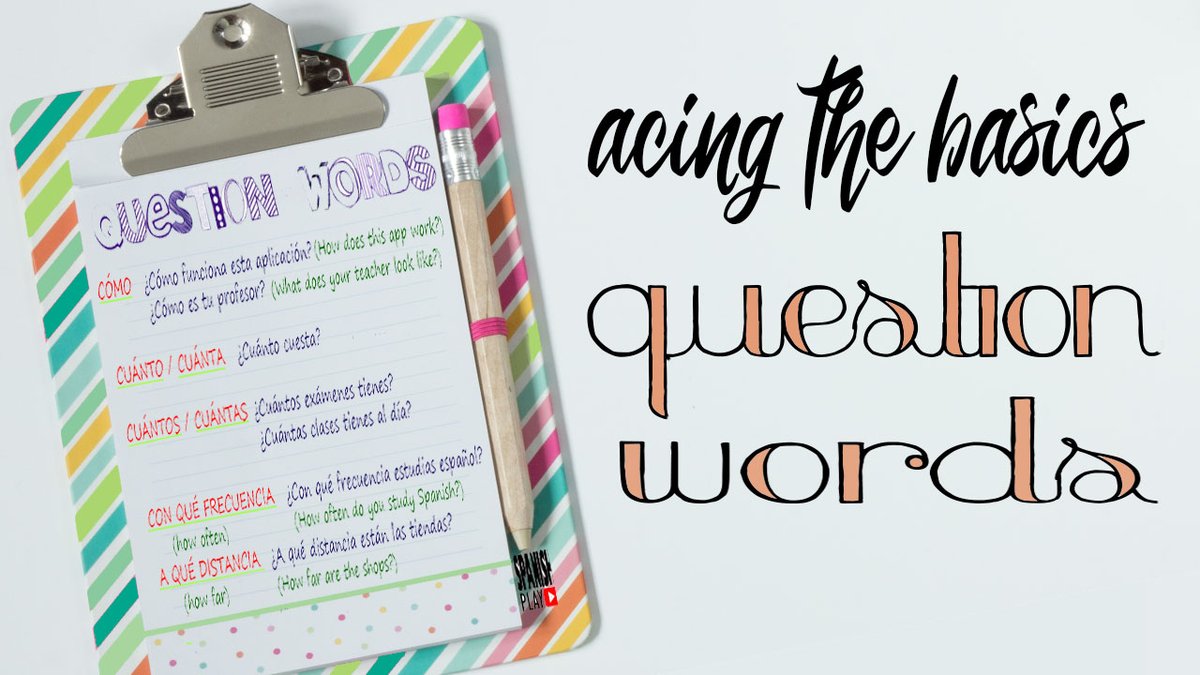 QUESTION WORDS
CÓMO ¿Cómo funciona esta aplicación? (How does this app work?)
¿Cómo es tu profesor? (What does your teacher look like?)
CUÁNTO / CUÁNTA ¿Cuánto cuesta?
CUÁNTOS / CUÁNTAS ¿Cuántos exámenes tienes?
¿Cuántas clases tienes al día?
CON QUÉ FRECUENCIA ¿Con qué frecuencia estudias español?
(how often) (How often do you study Spanish?)
A QUÉ DISTANCIA ¿A qué distancia están las tiendas?
(how far) (How far are the shops?)
SPANISH
PLAY
acing the basics
question
words